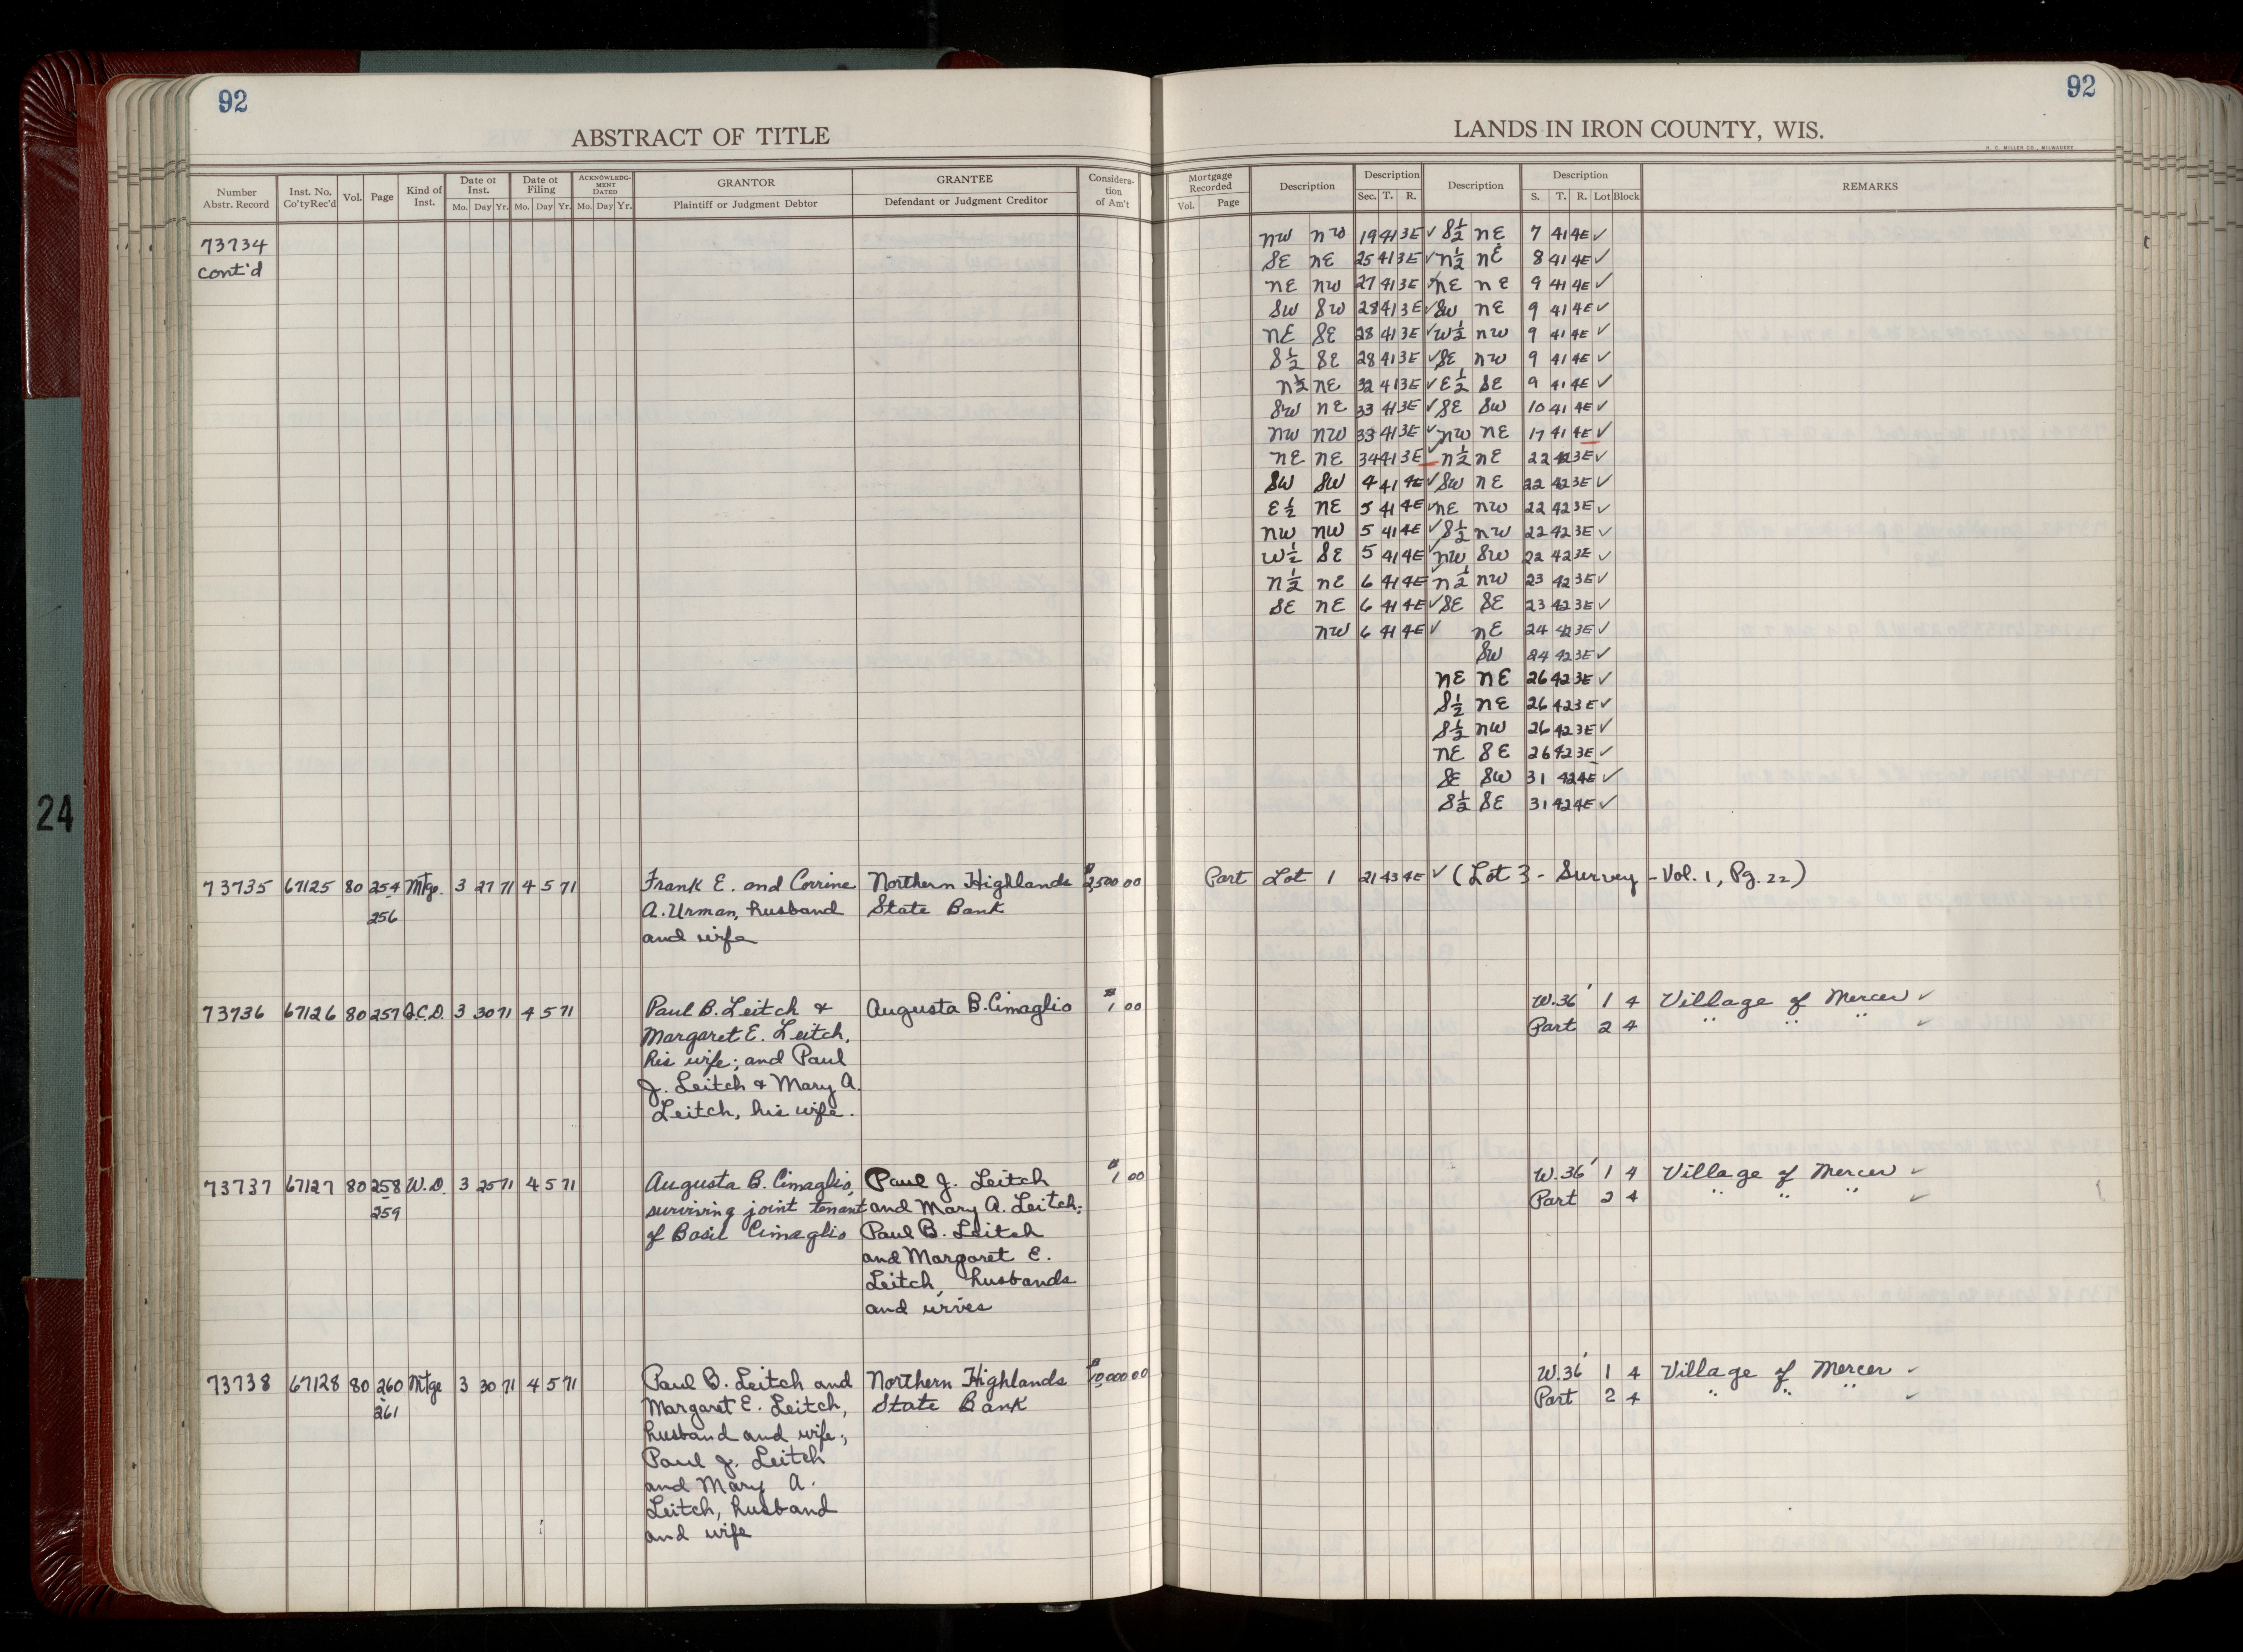 92
ABSTRACT OF TITLE
Number Abstr. Record
Inst. No. Co'ty Rec'd
Vol.
Page
Kind of Inst.
Date of Inst.
Mo. Day Yr.
Date of Filing
Mo. Day Yr.
ACKNOWLEDGMENT DATED
Mo. Day Yr.
GRANTOR
Plaintiff or Judgment Debtor
GRANTEE
Defendant or Judgment Creditor
Consideration of Am't
73734
cont'd
73735 67125 80 254 Mtge. 3 27 71 4 5 71 Frank E. and Corrine Northern Highlands $2,500 00
256 A. Urman, husband State Bank
and wife
73736 67126 80 257 Q.C.D. 3 30 71 4 5 71 Paul B. Leitch & Augusta B. Cimaglio $1 00
Margaret E. Leitch,
his wife; and Paul
J. Leitch & Mary A.
Leitch, his wife.
73737 67127 80 258 W.D. 3 25 71 4 5 71 Augusta B. Cimaglio, Paul J. Leitch $1 00
259 surviving joint tenant and Mary A. Leitch;
of Basil Cimaglio Paul B. Leitch
and Margaret E.
Leitch, husbands
and wives
73738 67128 80 260 Mtge 3 30 71 4 5 71 Paul B. Leitch and Northern Highlands $10,000 00
261 Margaret E. Leitch, State Bank
husband and wife;
Paul J. Leitch
and Mary A.
Leitch, husband
and wife
24
92
LANDS IN IRON COUNTY, WIS.
H. C. MILLER CO., MILWAUKEE
Mortgage Recorded
Vol. Page
Description
Description
Sec. T. R.
Description
Description
S. T. R. Lot Block
REMARKS
NW NW 19 41 3E ✓ S½ NE 7 41 4E ✓
SE NE 25 41 3E ✓ N½ NE 8 41 4E ✓
NE NW 27 41 3E ✓ NE NE 9 41 4E ✓
SW SW 28 41 3E ✓ SW NE 9 41 4E ✓
NE SE 28 41 3E ✓ W½ NW 9 41 4E ✓
S½ SE 28 41 3E ✓ SE NW 9 41 4E ✓
N½ NE 32 41 3E ✓ E½ SE 9 41 4E ✓
SW NE 33 41 3E ✓ SE SW 10 41 4E ✓
NW NW 33 41 3E ✓ NW NE 17 41 4E ✓
NE NE 34 41 3E ✓ N½ NE 22 42 3E ✓
SW SW 4 41 4E ✓ SW NE 22 42 3E ✓
E½ NE 5 41 4E ✓ NE NW 22 42 3E ✓
NW NW 5 41 4E ✓ S½ NW 22 42 3E ✓
W½ SE 5 41 4E ✓ NW SW 22 42 3E ✓
N½ NE 6 41 4E ✓ N½ NW 23 42 3E ✓
SE NE 6 41 4E ✓ SE SE 23 42 3E ✓
NW 6 41 4E ✓ NE 24 42 3E ✓
SW 24 42 3E ✓
NE NE 26 42 3E ✓
S½ NE 26 42 3E ✓
S½ NW 26 42 3E ✓
NE SE 26 42 3E ✓
SE SW 31 42 4E ✓
S½ SE 31 42 4E ✓
Part Lot 1 21 43 4E ✓ (Lot 3 - Survey - Vol. 1, Pg. 22)
W.36' 1 4 Village of Mercer ✓
Part 2 4 " " " ✓
W.36' 1 4 Village of Mercer ✓
Part 2 4 " " " ✓
W.36' 1 4 Village of Mercer ✓
Part 2 4 " " " ✓